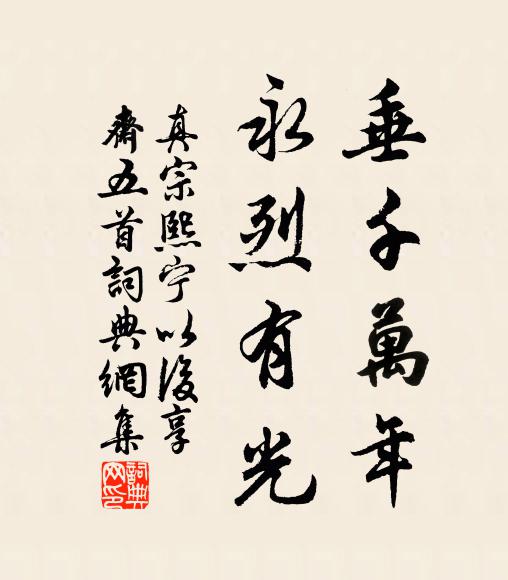 垂千萬年
永烈有光
真宗熙宁以後享
齋五首詞典網集
詞典网印